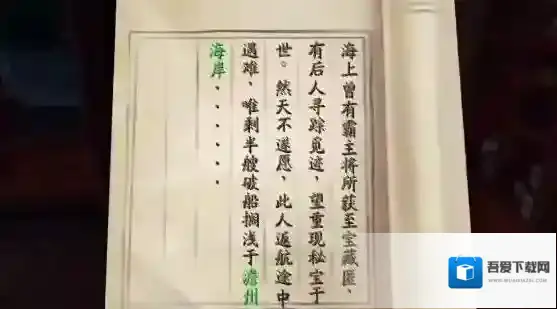 海上曾有霸主将所获至宝藏匿、
有后人寻踪觅迹，望重现秘宝于
世。然天不遂愿，此人返航途中
遇难，唯剩半艘破船搁浅于澹州
海岸、、、、、、
吾爱下载网
www.5uaixiazai.com